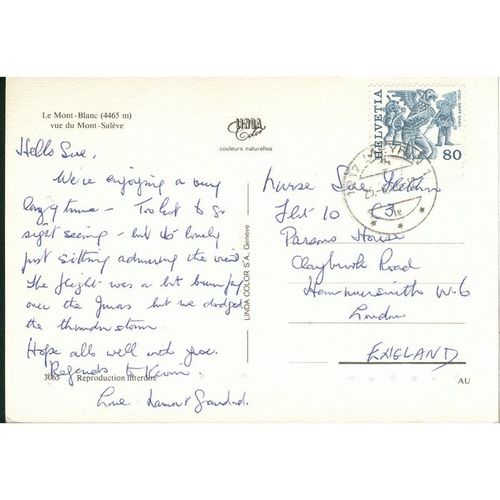 Le Mont-Blanc (4465 m)
vue du Mont-Salève
LINDA
Color
couleurs naturelles
HELVETIA
80
Hello Sue,
We're enjoying a very
lazy time - Too hot to go
sight seeing - but it's lovely
just sitting admiring the view.
The flight was a bit bumpy
over the Juras but we dodged
the thunderstorm.
Hope all's well with you.
Regards to Kevin.
Love
3065 Reproduction interdite
LINDA COLOR S.A. Genève
Nurse Sue
Flat 10 C3
Parsons House
Claybrook Road
Hammersmith W.6
London
ENGLAND
AU